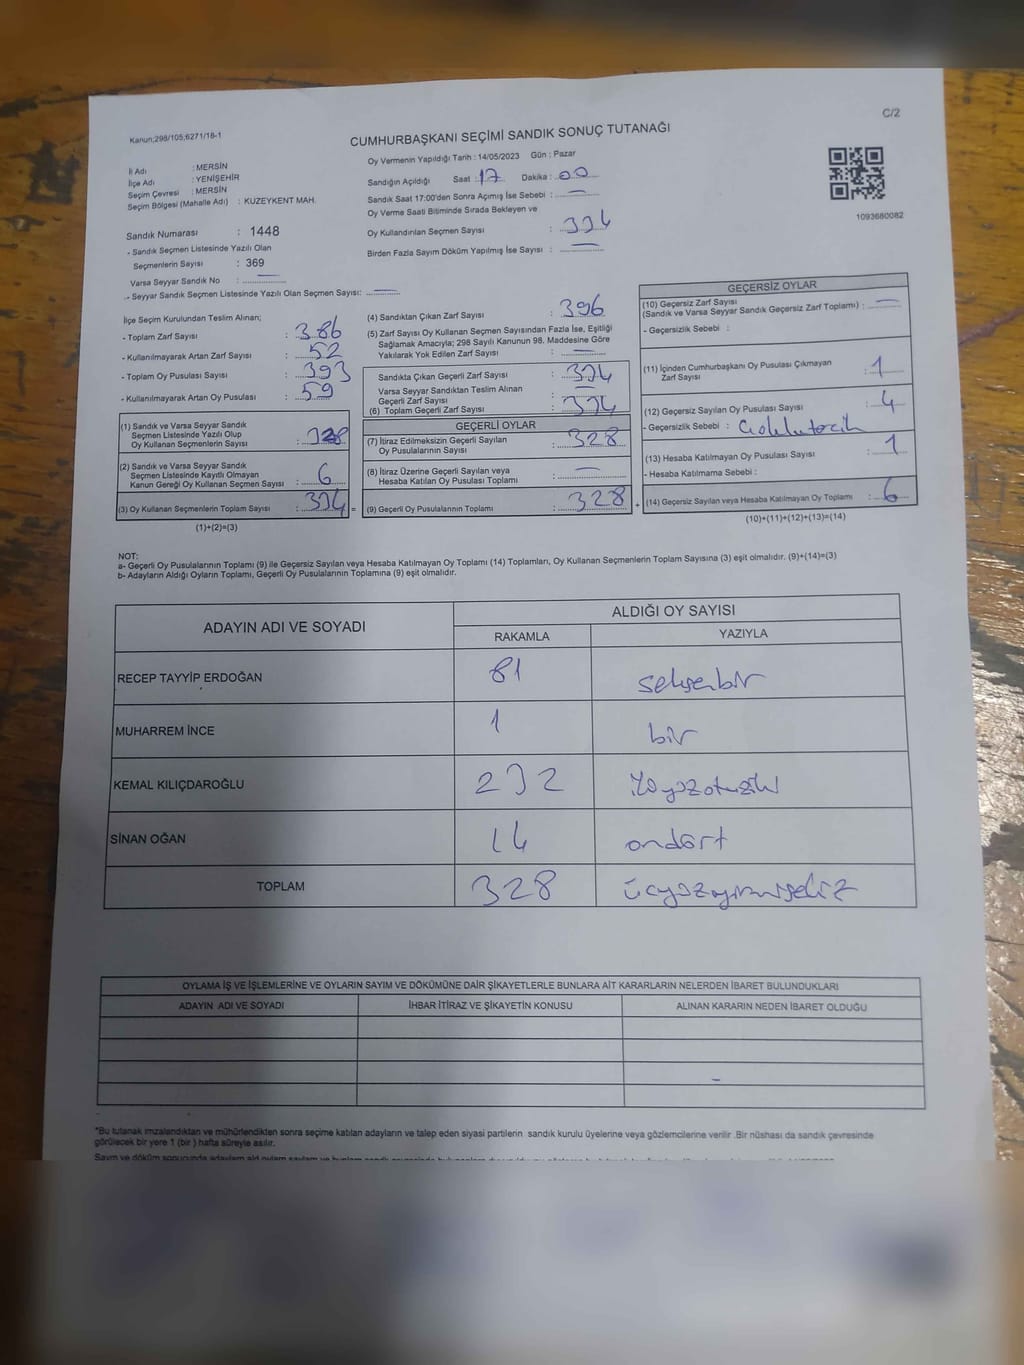 Kanun;298/105;6271/18-1
C/2
CUMHURBAŞKANI SEÇİMİ SANDIK SONUÇ TUTANAĞI
İl Adı : MERSİN
İlçe Adı : YENİŞEHİR
Seçim Çevresi : MERSİN
Seçim Bölgesi (Mahalle Adı) : KUZEYKENT MAH.
Sandık Numarası : 1448
- Sandık Seçmen Listesinde Yazılı Olan
Seçmenlerin Sayısı : 369
Varsa Seyyar Sandık No :
- Seyyar Sandık Seçmen Listesinde Yazılı Olan Seçmen Sayısı:
Oy Vermenin Yapıldığı Tarih : 14/05/2023 Gün : Pazar
Sandığın Açıldığı Saat : 17 Dakika : 00
Sandık Saat 17:00'den Sonra Açımış İse Sebebi :
Oy Verme Saati Bitiminde Sırada Bekleyen ve
Oy Kullandırılan Seçmen Sayısı : 334
Birden Fazla Sayım Döküm Yapılmış İse Sayısı :
1093680082
İlçe Seçim Kurulundan Teslim Alınan;
- Toplam Zarf Sayısı : 386
- Kullanılmayarak Artan Zarf Sayısı : 52
- Toplam Oy Pusulası Sayısı : 393
- Kullanılmayarak Artan Oy Pusulası : 59
(1) Sandık ve Varsa Seyyar Sandık
Seçmen Listesinde Yazılı Olup
Oy Kullanan Seçmenlerin Sayısı : 328
(2) Sandık ve Varsa Seyyar Sandık
Seçmen Listesinde Kayıtlı Olmayan
Kanun Gereği Oy Kullanan Seçmen Sayısı : 6
(3) Oy Kullanan Seçmenlerin Toplam Sayısı : 334 =
(1)+(2)=(3)
(4) Sandıktan Çıkan Zarf Sayısı :
(5) Zarf Sayısı Oy Kullanan Seçmen Sayısından Fazla İse, Eşitliği
Sağlamak Amacıyla; 298 Sayılı Kanunun 98. Maddesine Göre
Yakılarak Yok Edilen Zarf Sayısı :
Sandıkta Çıkan Geçerli Zarf Sayısı : 334
Varsa Seyyar Sandıktan Teslim Alınan
Geçerli Zarf Sayısı :
(6) Toplam Geçerli Zarf Sayısı : 334
GEÇERLİ OYLAR
(7) İtiraz Edilmeksizin Geçerli Sayılan
Oy Pusulalarının Sayısı : 328
(8) İtiraz Üzerine Geçerli Sayılan veya
Hesaba Katılan Oy Pusulası Toplamı :
(9) Geçerli Oy Pusulalarının Toplamı : 328 +
GEÇERSİZ OYLAR
(10) Geçersiz Zarf Sayısı
(Sandık ve Varsa Seyyar Sandık Geçersiz Zarf Toplamı) :
- Geçersizlik Sebebi :
(11) İçinden Cumhurbaşkanı Oy Pusulası Çıkmayan
Zarf Sayısı : 1
(12) Geçersiz Sayılan Oy Pusulası Sayısı : 4
- Geçersizlik Sebebi :
(13) Hesaba Katılmayan Oy Pusulası Sayısı : 1
- Hesaba Katılmama Sebebi :
(14) Geçersiz Sayılan veya Hesaba Katılmayan Oy Toplamı : 6
(10)+(11)+(12)+(13)=(14)
NOT:
a- Geçerli Oy Pusulalarının Toplamı (9) ile Geçersiz Sayılan veya Hesaba Katılmayan Oy Toplamı (14) Toplamları, Oy Kullanan Seçmenlerin Toplam Sayısına (3) eşit olmalıdır. (9)+(14)=(3)
b- Adayların Aldığı Oyların Toplamı, Geçerli Oy Pusulalarının Toplamına (9) eşit olmalıdır.
ADAYIN ADI VE SOYADI
ALDIĞI OY SAYISI
RAKAMLA YAZIYLA
RECEP TAYYİP ERDOĞAN 81 seksenbir
MUHARREM İNCE 1 bir
KEMAL KILIÇDAROĞLU 232 ikiyüzotuziki
SİNAN OĞAN 14 ondört
TOPLAM 328 üçyüzyirmisekiz
OYLAMA İŞ VE İŞLEMLERİNE VE OYLARIN SAYIM VE DÖKÜMÜNE DAİR ŞİKAYETLERLE BUNLARA AİT KARARLARIN NELERDEN İBARET BULUNDUKLARI
ADAYIN ADI VE SOYADI İHBAR İTİRAZ VE ŞİKAYETİN KONUSU ALINAN KARARIN NEDEN İBARET OLDUĞU
*Bu tutanak imzalandıktan ve mühürlendikten sonra seçime katılan adayların ve talep eden siyasi partilerin sandık kurulu üyelerine veya gözlemcilerine verilir .Bir nüshası da sandık çevresinde
görülecek bir yere 1 (bir ) hafta süreyle asılır.